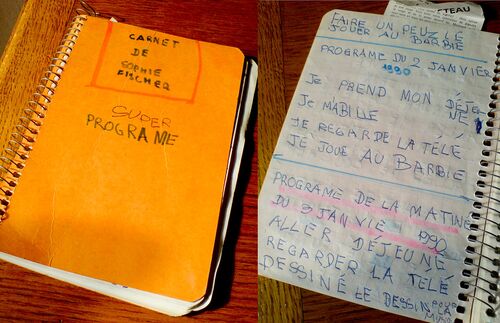 CARNET
DE
SOPHIE
FISCHER
SUPER
PROGRAME
TEAU
FAIRE UN PEUZ LE
JOUER AU BARBIE
PROGRAME DU 2 JANVIER
1990
Je PREND MON DÉJE
NÉ
Je MABILLE
JE REGARDE LA TÉLÉ
JE JOUE AU BARBIE
PROGRAME DE LA MATINÉ
DU 3 JANVIE 1990
ALLER DÉJEUNÉ
REGARDER LA TÉLÉ
DESSINÉ LE DESSIN POUR
LA